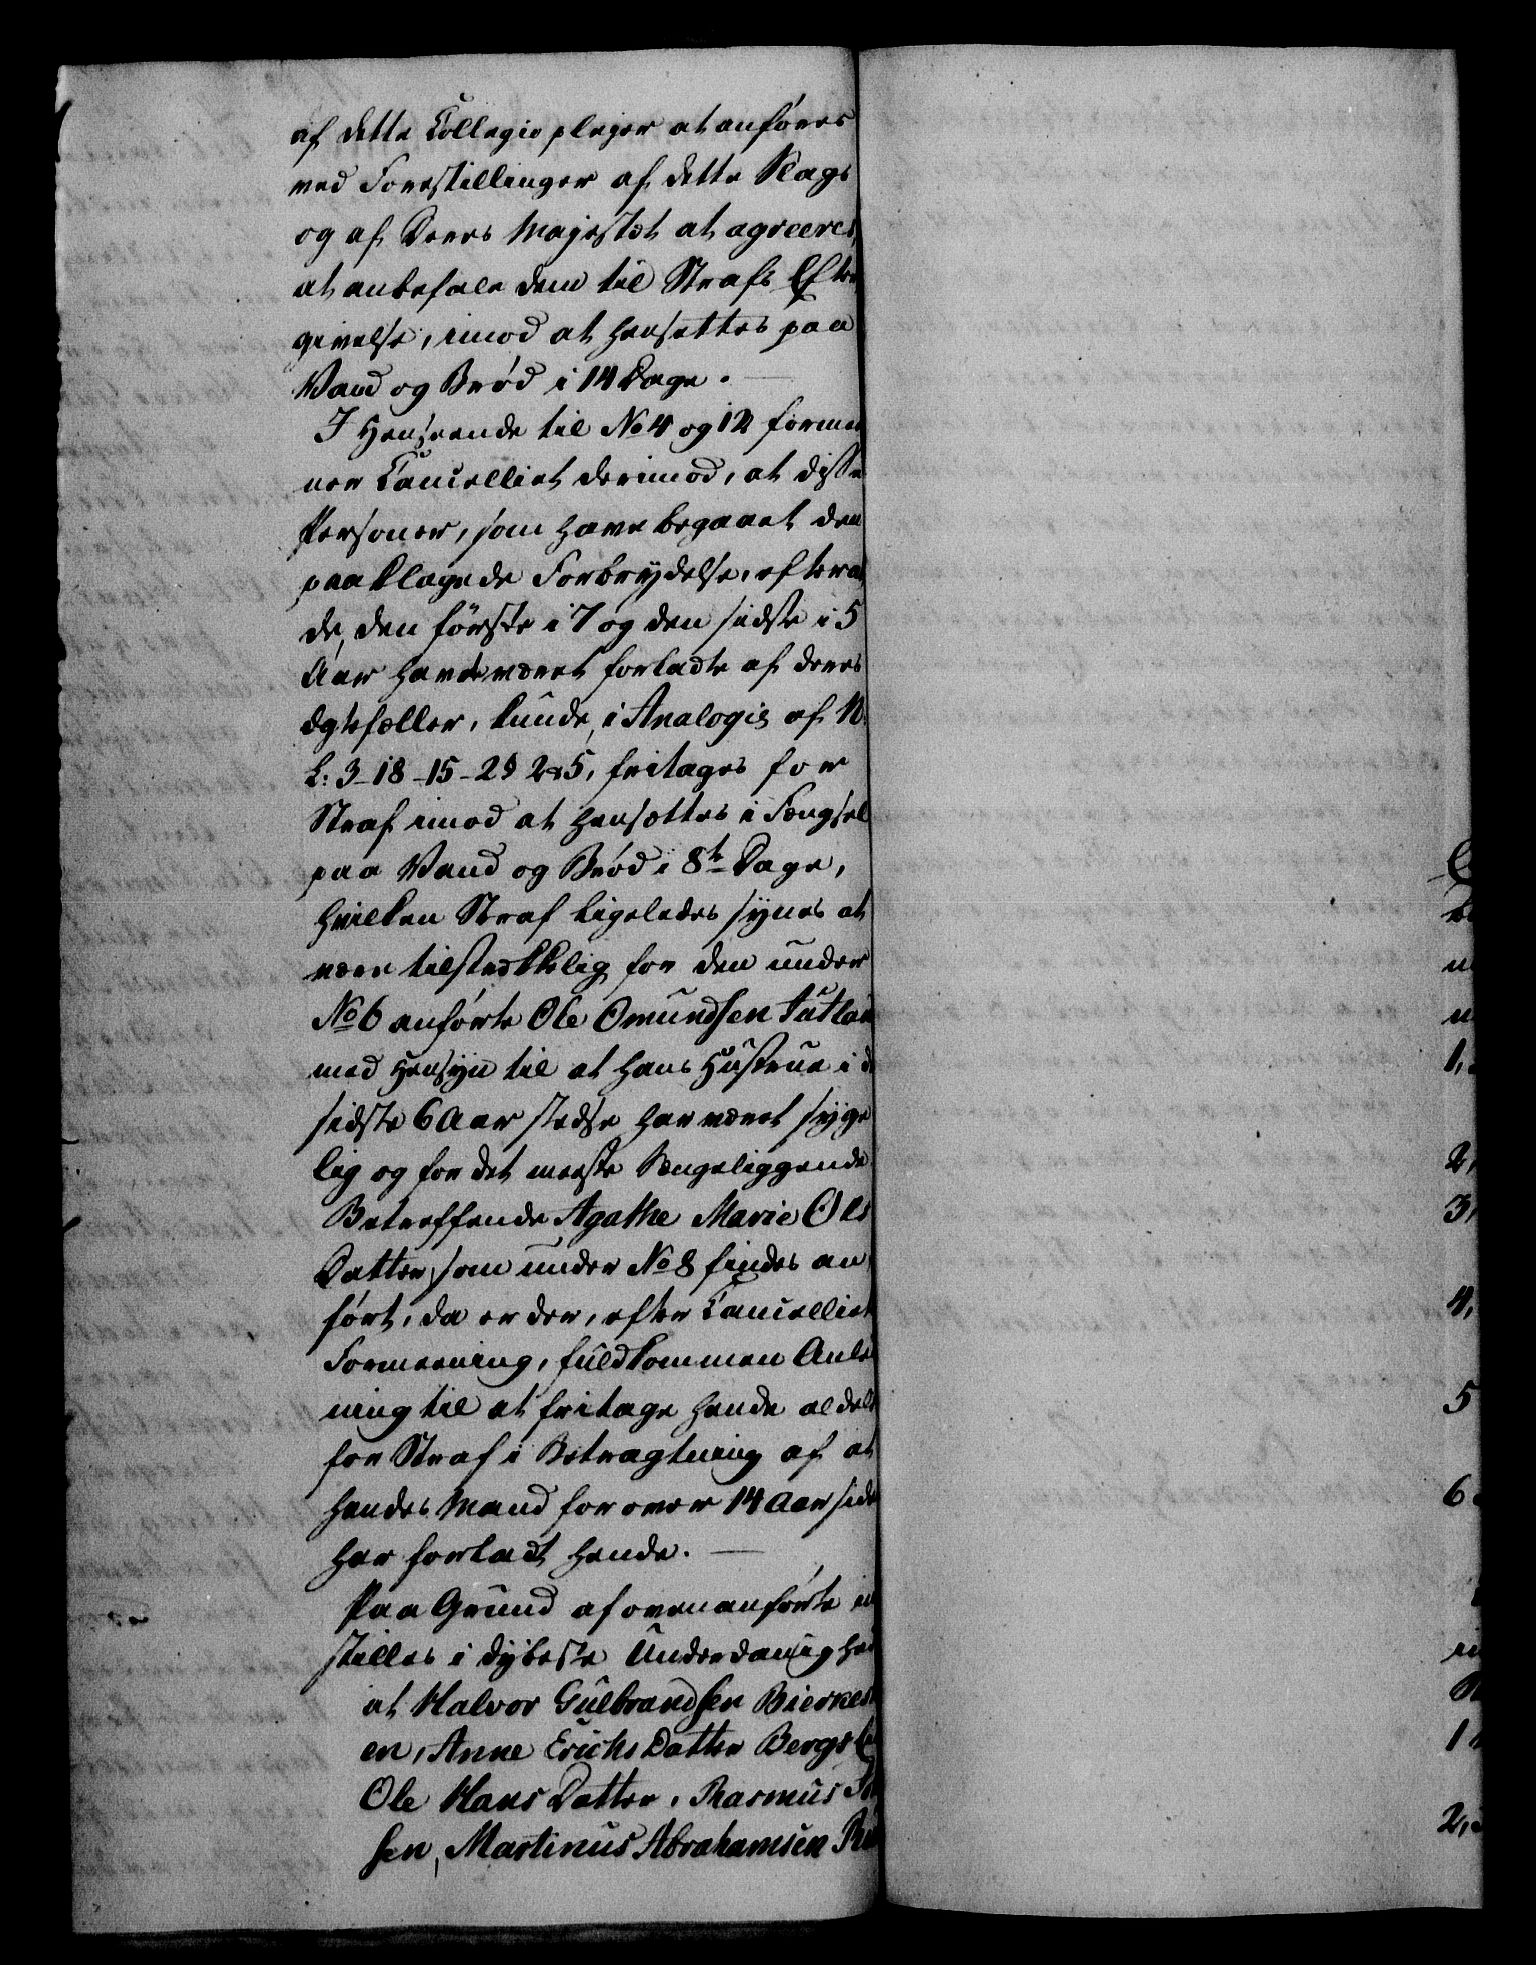 af dette Collegio plejer at anføres
ved Forestillinger af dette Slags
og af Deres Majestæt at agreeres,
at anbefale dem til Strafs Efter
givelse, imod at hensættes paa
Vand og Brød i 14 Dage.
I Henseende til No 4 og 12 formee
ner Cancelliet derimod, at disse
Personer, som have begaaet den
paaklagede Forbrydelse, efterat
de, den første i 7 og den sidste i 5
Aar havde været forladte af deres
Ægtefæller, kunde, i Analogie af N.
L: 3-18-15-2d 2&5, fritages for
Straf imod at hensættes i Fængsel
paa Vand og Brød i 8te Dage,
hvilken Straf ligeledes synes at
være tilstrækkelig for den under
No 6 anførte Ole Omundsen Jutland
med Hensyn til at hans Hustrue i de
sidste 6 Aar stedse har været syge
lig og for det meeste Sængeliggende
Betreffende Agathe Marie Ols
Datter, som under No 8 findes an
ført, da er der, efter Cancelliets
Formeening, fuldkommen Anled
ning til at fritage hende aldeles
for Straf i Betragtning af at
hendes Mand for over 14 Aar siden
har forladt hende.
Paa Grund af ovenanførte ind
stilles i dybeste Underdanighed
at Halvor Gulbrandsen Bierkes
en, Anne Erichs Datter Berge
Ole Hans Datter, Rasmus
sen, Martinus Abrahamsen
1,
2,
3,
4,
5
6
1
2,